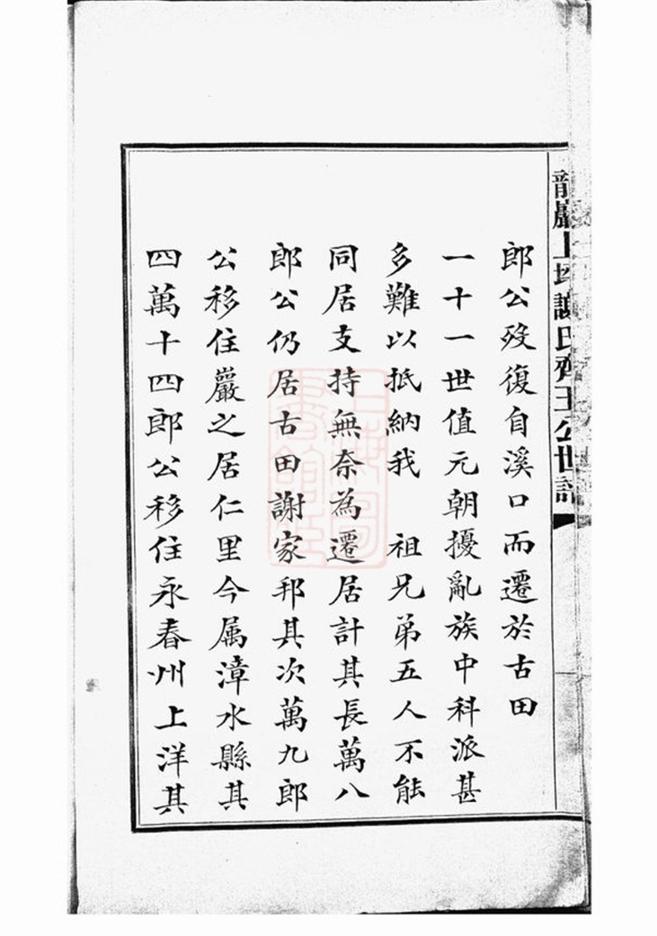 龍巖上坪謝氏齊王公世譜
郎公殁復自溪口而遷於古田
一十一世值元朝擾亂族中科派甚
多難以抵納我　祖兄弟五人不能
同居支持無奈為遷居計其長萬八
郎公仍居古田謝家邦其次萬九郎
公移住巖之居仁里今属漳水縣其
四萬十四郎公移住永春州上洋其